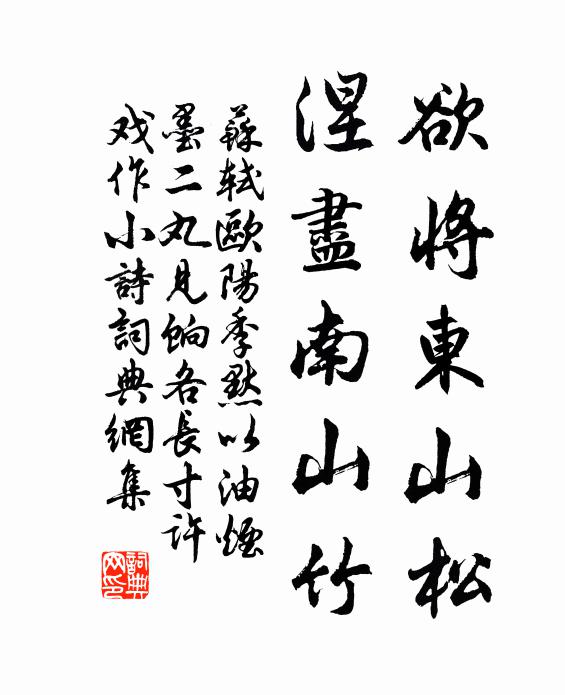 欲將東山松
涅盡南山竹
蘇軾歐陽季默以油煙
墨二丸見餉各長寸許
戏作小詩詞典網集
詞典
网印